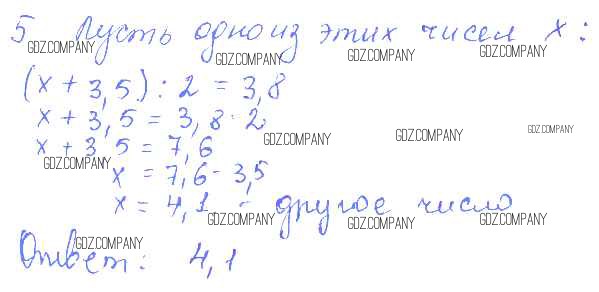 5 Пусть одно из этих чисел x:
GDZ.COMPANY GDZ.COMPANY GDZ.COMPANY GDZ.COMPANY
(x + 3,5) : 2 = 3,8
x + 3,5 = 3,8 · 2
GDZ.COMPANY GDZ.COMPANY GDZ.COMPANY
x + 3,5 = 7,6
GDZ.COMPANY
x = 7,6 - 3,5
x = 4,1 - другое число
GDZ.COMPANY GDZ.COMPANY GDZ.COMPANY
GDZ.COMPANY
Ответ: 4,1